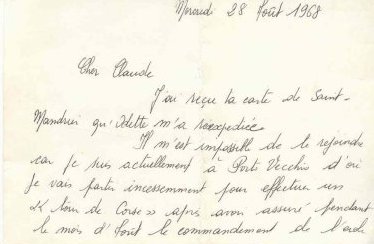 Mercredi 28 Août 1968
Cher Claude
J'ai reçu ta carte de Saint-
Mandrier qu'Odette m'a réexpédiée.
Il m'est impossible de te rejoindre
car je suis actuellement à Porto Vecchio d'où
je vais partir incessemment pour effectuer un
« tour de Corse » après avoir assuré pendant
le mois d'Août le commandement de l'